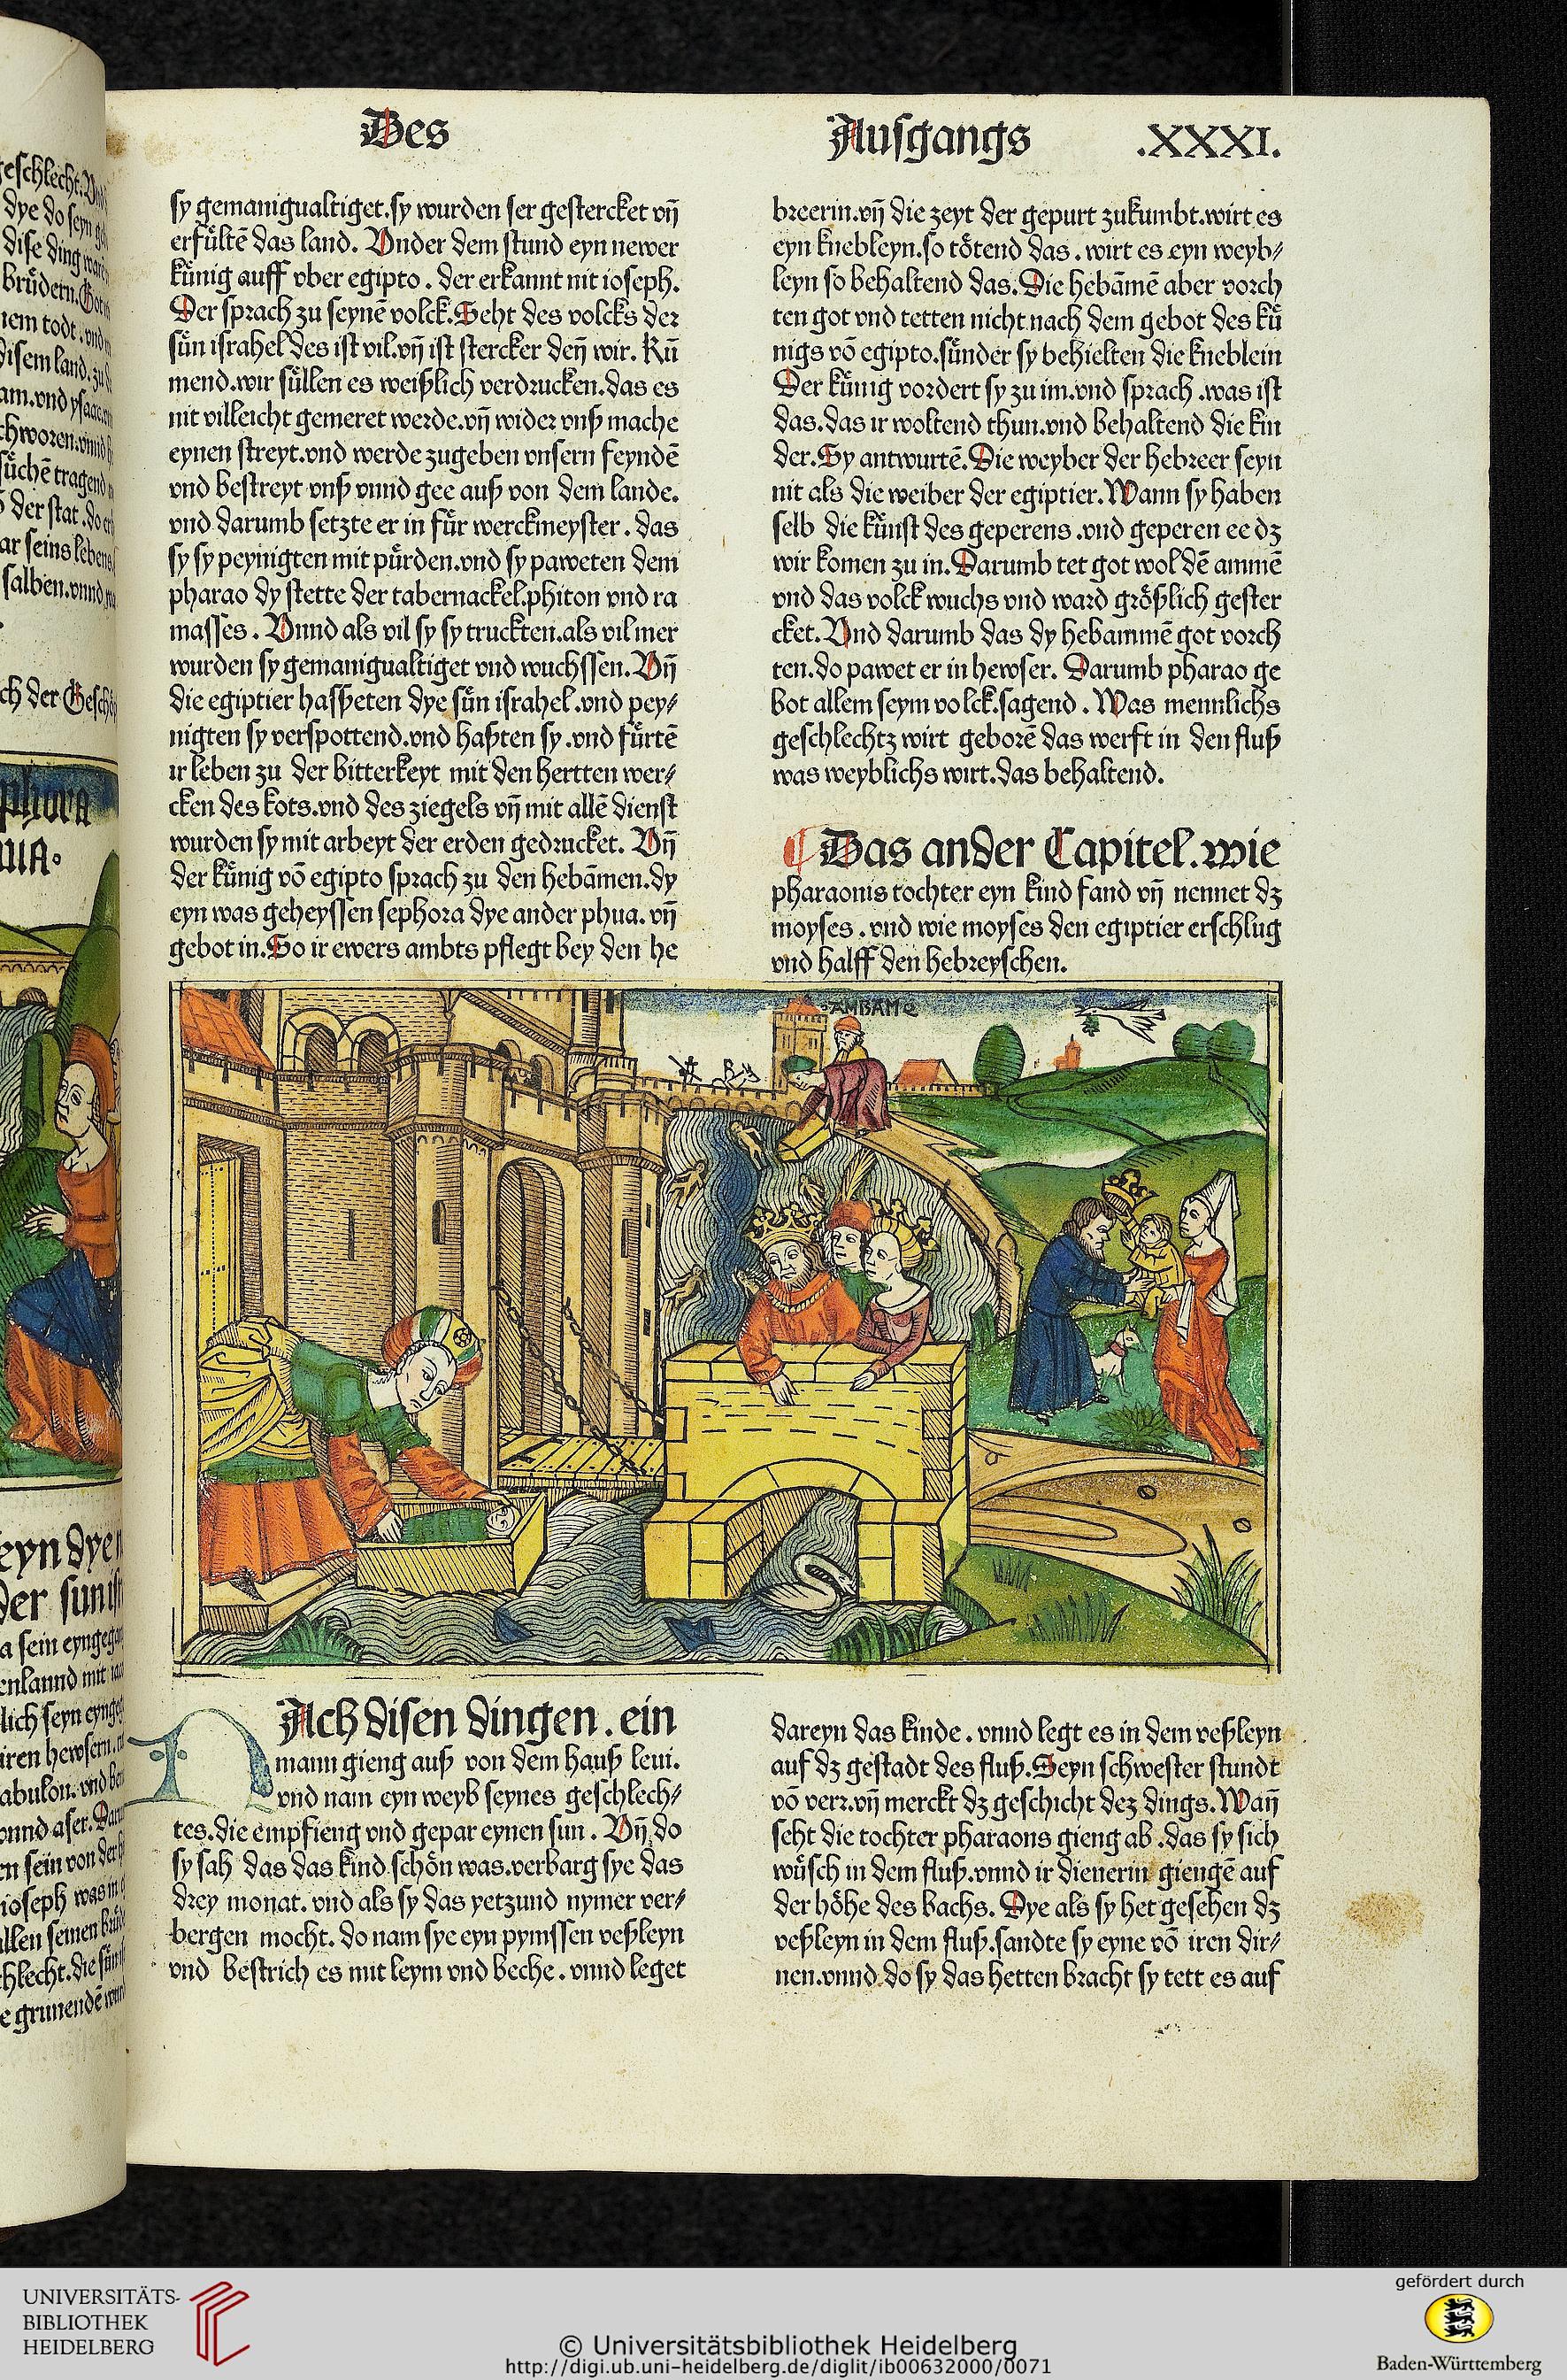 Des
Ausgangs .XXXI.
sy gemanigualtiget.sy wurden ser gestercket vñ
erfu᷑ltē das land. Vnder dem stund eyn newer
ku᷑nig auff vber egipto. der erkannt nit ioseph.
Der sprach zu seynē volck.Seht des volcks der
su᷑n israhel des ist vil.vñ ist stercker deñ wir. Ku᷑
mend.wir su᷑llen es weißlich verdrucken.das es
nit villeicht gemeret werde.vñ wider vnß mache
eynen streyt.vnd werde zugeben vnsern feyndē
vnd bestreyt vnß vnnd gee auß von dem lande.
vnd darumb setzte er in fu᷑r werckmeyster. das
sy sy peynigten mit pu᷑rden.vnd sy paweten dem
pharao dy stette der tabernackel.phiton vnd ra
masses. Vnnd als vil sy sy truckten.als vil mer
wurden sy gemanigualtiget vnd wuchssen. Vñ
die egiptier hasßeten dye su᷑n israhel.vnd pey⸗
nigten sy verspottend.vnd haßten sy.vnd fu᷑rtē
ir leben zu der bitterkeyt mit den hertten wer⸗
cken des kots.vnd des ziegels vñ mit allē dienst
wurden sy mit arbeyt der erden gedrucket. Vñ
der ku᷑nig vō egipto sprach zu den hebāmen.dy
eyn was geheyssen sephora dye ander phua. vñ
gebot in.So ir ewers ambts pflegt bey den he
breerin.vñ die zeyt der gepurt zukumbt.wirt es
eyn knebleyn.so tötend das. wirt es eyn weyb⸗
leyn so behaltend das.Die hebāmē aber vorch
ten got vnd tetten nicht nach dem gebot des ku᷑
nigs vō egipto.su᷑nder sy behielten die kneblein
Der ku᷑nig vordert sy zu im.vnd sprach .was ist
das.das ir woltend thun.vnd behaltend die kin
der.Sy antwurtē.Die weyber der hebreer seyn
nit als die weiber der egiptier.Wann sy haben
selb die ku᷑nst des geperens .vnd geperen ee dz
wir komen zu in.Darumb tet got wol dē ammē
vnd das volck wuchs vnd ward größlich gester
cket.Vnd darumb das dy hebammē got vorch
ten.do pawet er in hewser. Darumb pharao ge
bot allem seym volck.sagend. Was mennlichs
geschlechtz wirt geborē das werft in den fluß
was weyblichs wirt.das behaltend.
Das ander Capitel.wie
pharaonis tochter eyn kind fand vñ nennet dz
moyses. vnd wie moyses den egiptier erschlug
vnd halff den hebreyschen.
NAch disen dingen. ein
mann gieng auß von dem hauß leui.
vnd nam eyn weyb seynes geschlech⸗
tes.die empfieng vnd gepar eynen sun. Vñ do
sy sah das das kind schön was.verbarg sye das
drey monat. vnd als sy das yetzund nymer ver⸗
bergen mocht. do nam sye eyn pymssen veßleyn
vnd bestrich es mit leym vnd beche. vnnd leget
dareyn das kinde. vnnd legt es in dem veßleyn
auf dz gestadt des fluß.Seyn schwester stundt
vō verr.vñ merckt dz geschicht dez dings.Wañ
seht die tochter pharaons gieng ab.das sy sich
wu᷑sch in dem fluß.vnnd ir dienerin giengē auf
der höhe des bachs. Dye als sy het gesehen dz
veßleyn in dem fluß.sandte sy eyne vō iren dir⸗
nen.vnnd do sy das hetten bracht sy tett es auf
UNIVERSITÄTS-
BIBLIOTHEK
HEIDELBERG
© Universitätsbibliothek Heidelberg
http://digi.ub.uni-heidelberg.de/diglit/ib00632000/0071
gefördert durch
Baden-Württemberg